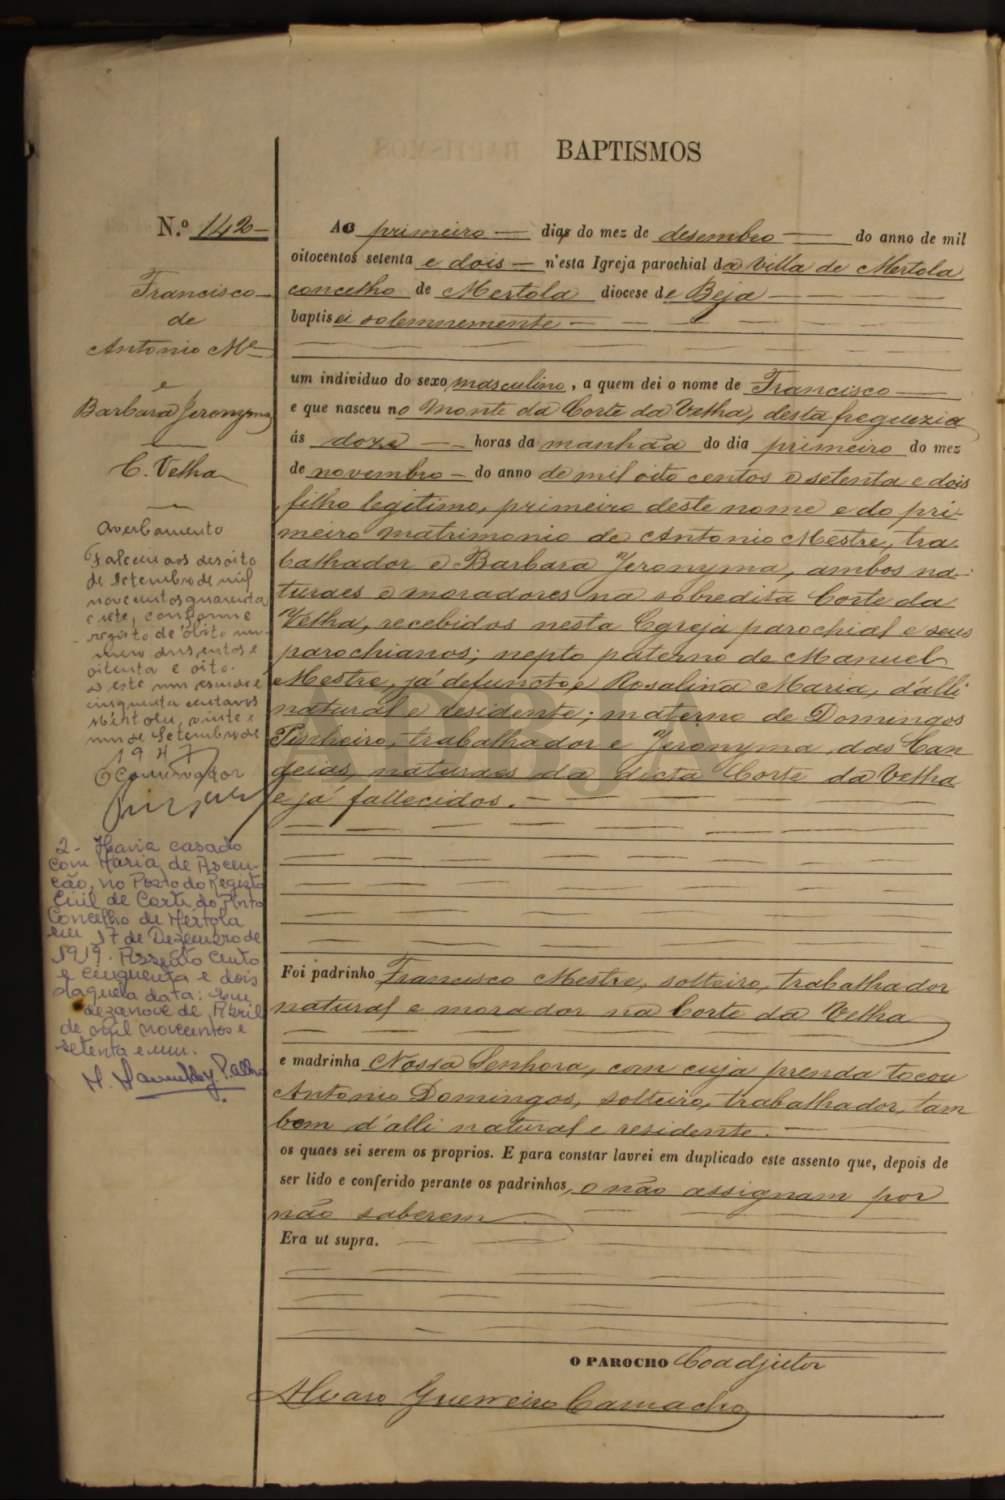 BAPTISMOS
N.º 142
Francisco
de
Antonio M.e
e
Barbara Jeronyma
C. Velha
Averbamento
Faleceu aos desoito
de Setembro de mil
novecentos quarenta
e sete, conforme
registo de óbito nu-
mero dusentos e
oitenta e oito.
D este um escudo e
cinquenta centavos
Mértola, vinte e
um de Setembro de
1947
O Conservador
2 - Havia casado
com Maria de Ascen-
ção, no Posto do Registo
Civil de Corte do Pinto
Concelho de Mertola
em 17 de Dezembro de
1919. Assento cento
e cinquenta e dois
daquela data: Em
dezanove de Abril
de mil novecentos e
setenta e um.
Ao primeiro dia do mez de desembro do anno de mil
oitocentos setenta e dois n'esta Igreja parochial da Villa de Mertola
concelho de Mertola diocese de Beja
baptisei solemnemente
um individuo do sexo masculino, a quem dei o nome de Francisco
e que nasceu no Monte da Corte da Velha, desta freguezia
ás doze horas da manhãa do dia primeiro do mez
de novembro do anno de mil oito centos e setenta e dois
filho legitimo, primeiro deste nome e do pri-
meiro matrimonio de Antonio Mestre, tra-
balhador e Barbara Jeronyma, ambos na-
turaes e moradores na sobredita Corte da
Velha, recebidos nesta Egreja parochial e seus
parochianos; nepto paterno de Manuel
Mestre, já defuncto, e Rosalina Maria, d'alli
natural e residente; materno de Domingos
Pinheiro, trabalhador e Jeronyma das Can-
deias, naturaes da dicta Corte da Velha
e já fallecidos.
Foi padrinho Francisco Mestre, solteiro, trabalhador
natural e morador na Corte da Velha
e madrinha Nossa Senhora, com cuja prenda tocou
Antonio Domingos, solteiro, trabalhador, tam
bem d'alli natural e residente.
os quaes sei serem os proprios. E para constar lavrei em duplicado este assento que, depois de
ser lido e conferido perante os padrinhos, o não assignam por
não saberem
Era ut supra.
O PAROCHO Coadjutor
Alvaro Guerreiro Camacho